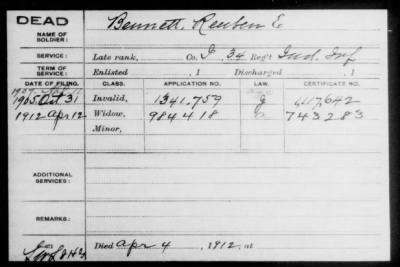 DEAD
Bennett, Reuben E
NAME OF SOLDIER:
SERVICE:
Late rank, Co. I, 34 Reg't Ind. Inf
TERM OF SERVICE:
Enlisted , 1 Discharged , 1
DATE OF FILING. CLASS. APPLICATION NO. LAW. CERTIFICATE NO.
1905 Oct 31 Invalid, 1341.757 G 1117,642
1912 Apr 12 Widow, 984418 743283
Minor,
ADDITIONAL SERVICES:
REMARKS:
Died Apr 4 , 1912, at